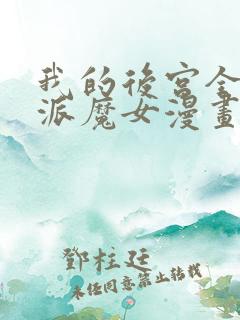 我的後宮全
派魔女漫畫
鄧柱廷
未任同意禁止轉載